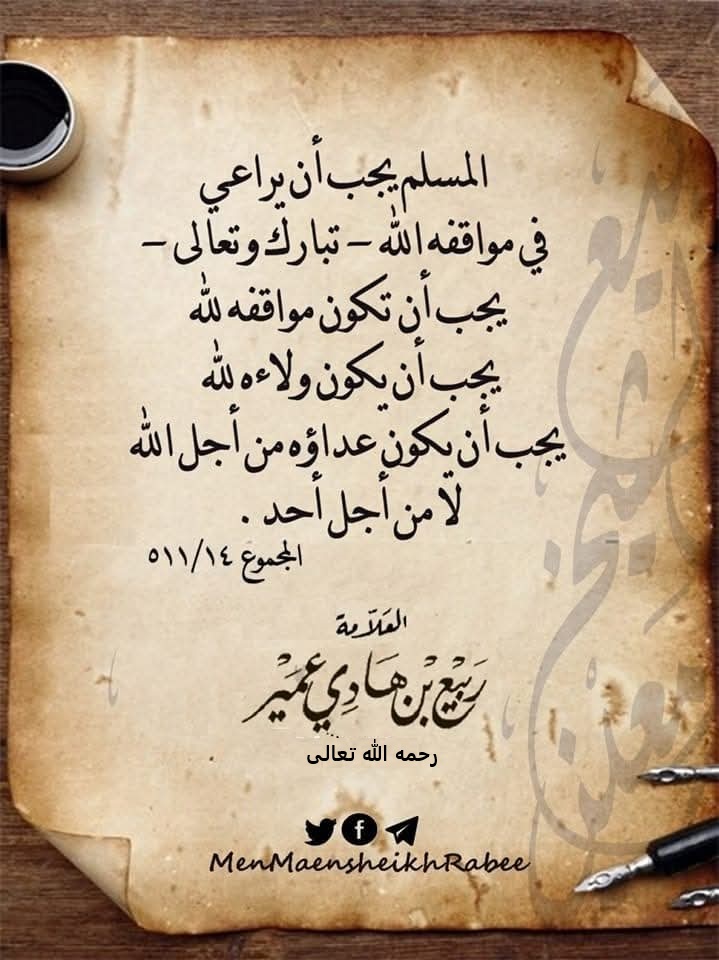 المسلم يجب أن يراعي
في مواقفه الله – تبارك وتعالى –
يجب أن تكون مواقفه لله
يجب أن يكون ولاءه لله
يجب أن يكون عداؤه من أجل الله
لا من أجل أحد .
المجموع ٥١١/١٤
العلّامة
رَبِيْع بْن هَادِي عُمَيْر
رحمه الله تعالى
MenMaensheikhRabee